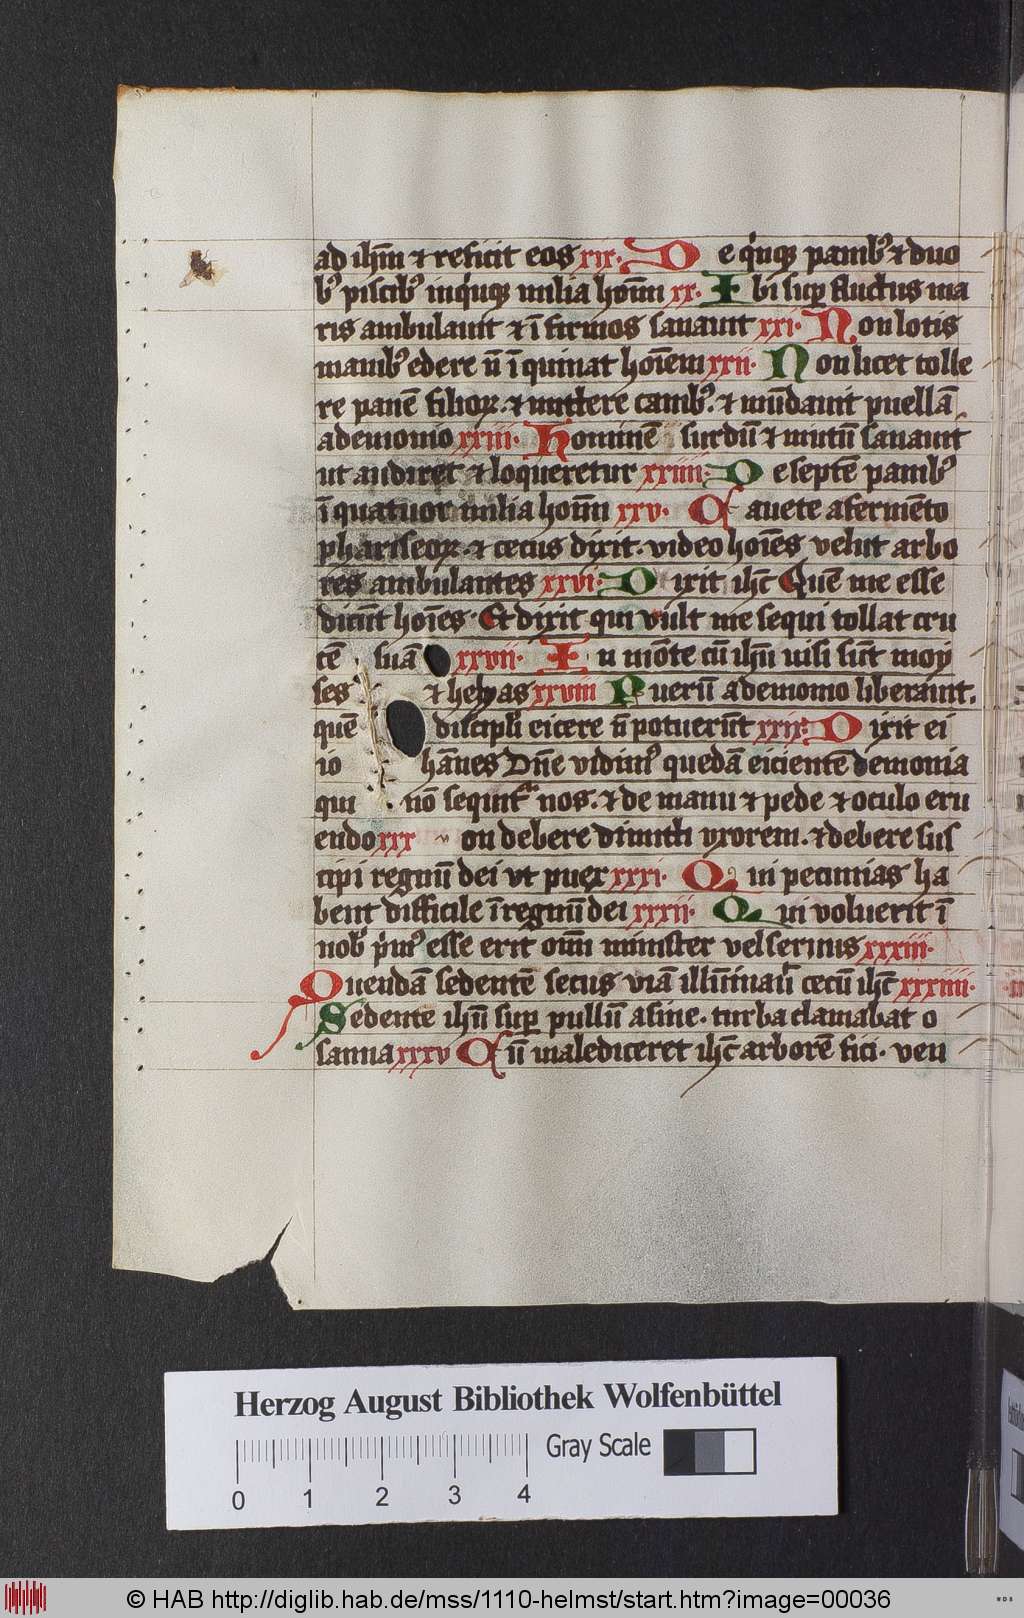 ad ihm̄ ⁊ reficit eos xix. D e qͥnqꝫ panibꝰ ⁊ duo
bꝰ piscibꝰ inqͥnqꝫ milia hoīm xx. I bi suꝑ fluctus ma
ris ambulauit ⁊ ī firmos sanauit xxi. N on lotis
manibꝰ edere n̄ ī quinat hoīem xxii. N on licet tolle
re panē filioꝝ. ⁊ mittere canibꝰ. ⁊ mūdauit puellā
a demonio xxiii. Hominē surdū ⁊ mutū sanauit
ut audiret ⁊ loqueretur xxiiii. D e septē panibꝰ
ī quatuor milia hoīm xxv. C auete a fermēto
phariseoꝝ. ⁊ cecus dixit. video hoīes velut arbo
res ambulantes xxvi. D ixit ihc̄ Quē me esse
dicūt hoīes. Et dixit qui vult me sequi tollat cru
cē suā xxvii. I n mōte cū ihū uisi sūt moy
ses ⁊ helyas xxviii P uerū a demonio liberauit.
quē discipli̅ eicere n̄ potuerūt xxix. D ixit ei
io hānes Dn̄e vidimꝰ quedā eicientē demonia
qui nō sequitᷣ nos. ⁊ de manu ⁊ pede ⁊ oculo eru
endo xxx on debere dimitti vxorem. ⁊ debere sus
cipi regnū dei vt puer xxxi. Q ui pecunias ha
bent difficile ī regnū dei xxxii. Q ui voluerit ī
nobᷤ pͥmꝰ esse erit oīm minister vel seruus xxxiii.
Quendā sedentē secus viā illūinauit cecū ihc̄ xxxiiii.
Sedente ihū suꝑ pullū asine. turba clamabat o
sanna xxxv C ū malediceret ihc̄ arborē fici. ven
Herzog August Bibliothek Wolfenbüttel
Gray Scale
0 1 2 3 4
© HAB http://diglib.hab.de/mss/1110-helmst/start.htm?image=00036